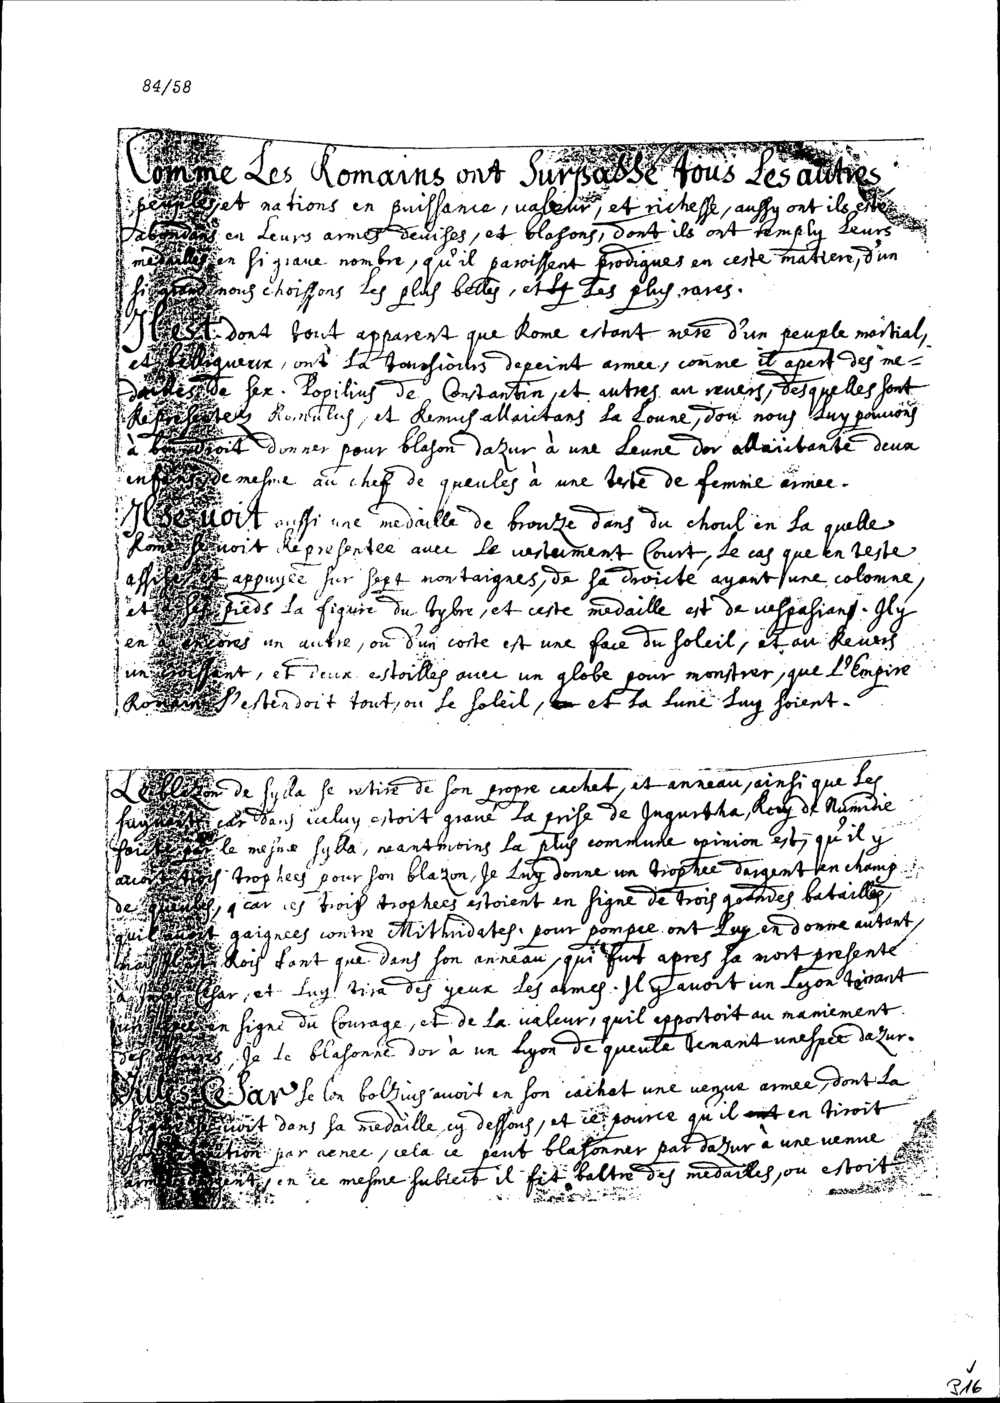 84/58
Comme Les Romains ont Surpassé tous Les autres
peuples, et nations en puissance, valeur, et richesse, aussy ont ils esté
abondans en Leurs armes devises, et blasons, dont ils ont remply Leurs
medailles en si grave nombre, qu'il paroissent prodigues en ceste matiere, d'un
si grand nous choissons Les plus belles, et Les plus rares.
Il est dont tout apparent que Rome estant mere d'un peuple martial,
et belliqueux, ont La tousjours depeint armee, comme il apert des me=
dailles de Sex. Popilius de Constantin, et autres au revers, desquelles sont
Representez Romulus, et Remus allaictans La Louve, dou nous Luy pouvons
à bon droit donner pour blason dazur à une Leuve dor allaictante deux
enfans, de mesme au chef de gueules à une teste de femme armee.
Il se voit aussi une medaille de bronze dans du choul en La quelle
Rome se voit Representee avec Le vestement Court, Le casque en teste
assise, et appuyee sur sept montaignes, de sa droicte ayant une colomne,
et à ses pieds La figure du tybre, et ceste medaille est de vespasian. Il y
en à encores un autre, ou d'un coste est une face du soleil, et au Revers
un croissant, et deux estoilles avec un globe pour monstrer, que L'Empire
Romain s'estendoit tout, ou Le soleil, et La Lune Luy soient.
Le blazon de sylla se retire de son propre cachet, et anneau, ainsi que Les
suyvants car dans iceluy estoit gravé La prise de Jugurtha, Roy de Numidie
faicte par le mesme sylla, neantmoins La plus commune opinion est, qu'il y
avoit trois trophees pour son blazon, Je Luy donne un trophee dargent en champ
de gueules, car ces trois trophees estoient en signe de trois grandes batailles,
quil avoit gaignees contre Mithridates. pour pompee ont Luy en donne autant,
mais Rois tant que dans son anneau, qui fut apres sa mort presente
à Jules Cesar, et Luy tira des yeux Les armes. Il y avoit un Lyon tenant
en signe du Courage, et de La valeur, quil apportoit au maniement
des affaires, Je Le blasonne dor à un Lyon de gueule tenant une spee dazur.
Jules Cesar Selon bolzius avoit en son cachet une venus armee, dont La
figure se voit dans sa medaille cy dessous, et ce pource qu'il en tiroit
par aenee, cela ce peut blasonner par dazur à une venue
armee dargent, en ce mesme subiect il fit battre des medailles, ou estoit
B16